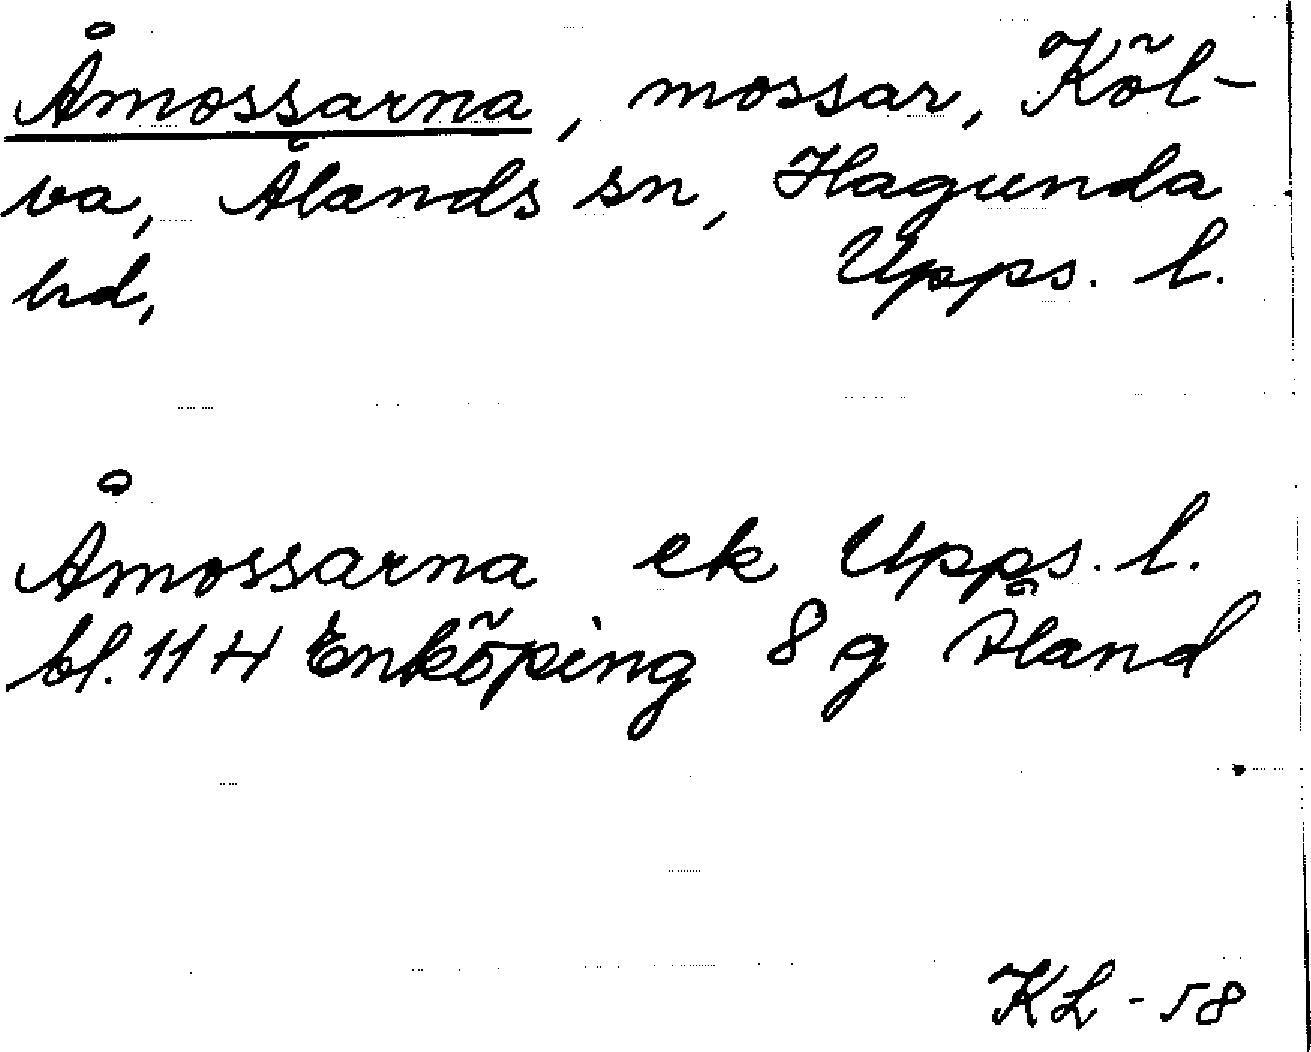 Åmossarna, mossar, Köl-
va, Ålands sn, Hagunda
hd, Upps. l.
Åmossarna ek Upps. l.
bl. 11 H Enköping 8 g Åland
KL - 58